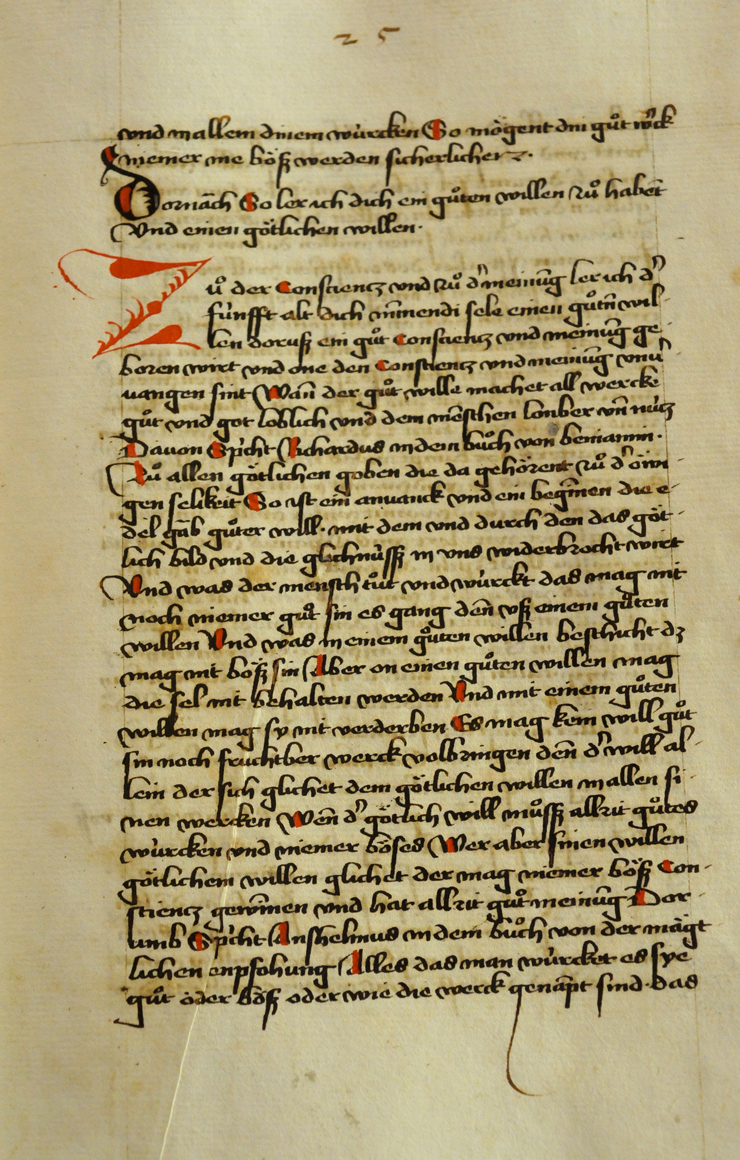 25
vnd in allem dinem wùrcken So mögent din gůt wˀck
niemer me böß werden sicherlicher
Dornāch So ler ich dich ein gůten willen zů haben
Vnd einen götlichen willen·
Zů der Consciencz vnd zů dˀ meinūg ler ich dˀ
fùnfft alt dich min̄endi sele einen gůtn̄ wil-
len dorusß ein gůt Consciencz vnd meinūg ge-
boren wirt vnd one den Consciencz vnd meinūg
uangen sint Wan̄ der gůt wille machet all wercke
gůt vnd got loblich vnd dem mēschen lonber vn̄ nùcz
Dauon Spˀcht Richardus in dem bůch von beniamin·
Zů allen götlichen goben die da gehörent zů dˀ
gen selikeit So ist ein anuanck vnd ein begin̄en die e-
del gāb gůter will· mit dem vnd durch den das göt-
lich bild vnd die glichnùsß in vns widerbrocht wirt
Vnd was der mensch tůt vnd wùrckt das mag nit
noch niemer gůt sin es gang den̄ vsß einem gůten
willen Vnd was in einem gůten willen beschicht dz
mag nit böß sin Aber on einen gůten willen mag
die sel nit behalten werden Vnd mit einem gůten
willen mag sy nit verderben Es mag kein will gůt
sin noch fruchtber werck volbringen den̄ dˀ will al-
lein der sich glichet dem götlichen willen in allen si-
nen wercken Wen̄ dˀ götlich will můsß allzit gůtes
wùrcken vnd niemer böses Wer aber sinen willen
götlichem willen glichet der mag niemer böß Con-
sciencz gewin̄en vnd hat allzit gůt meinūg Dor-
umb Spˀcht Anshelmus in dem bůch von der mägt-
lichen enpfohung Alles das man wùrcket es sye
gůt oder böß oder wie die werck genām̄t sind· das